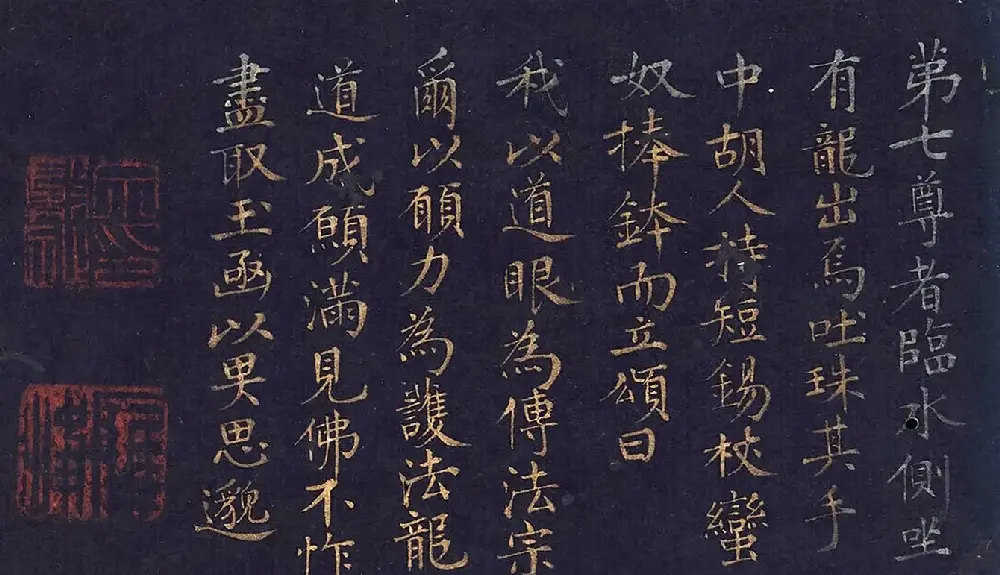 弟七尊者臨水側坐
有龍出焉吐珠其手
中胡人持短錫杖蠻
奴捧鉢而立頌曰
我以道眼為傳法宗
爾以願力為護法龍
道成願滿見佛不怍
盡取玉函以畀思邈